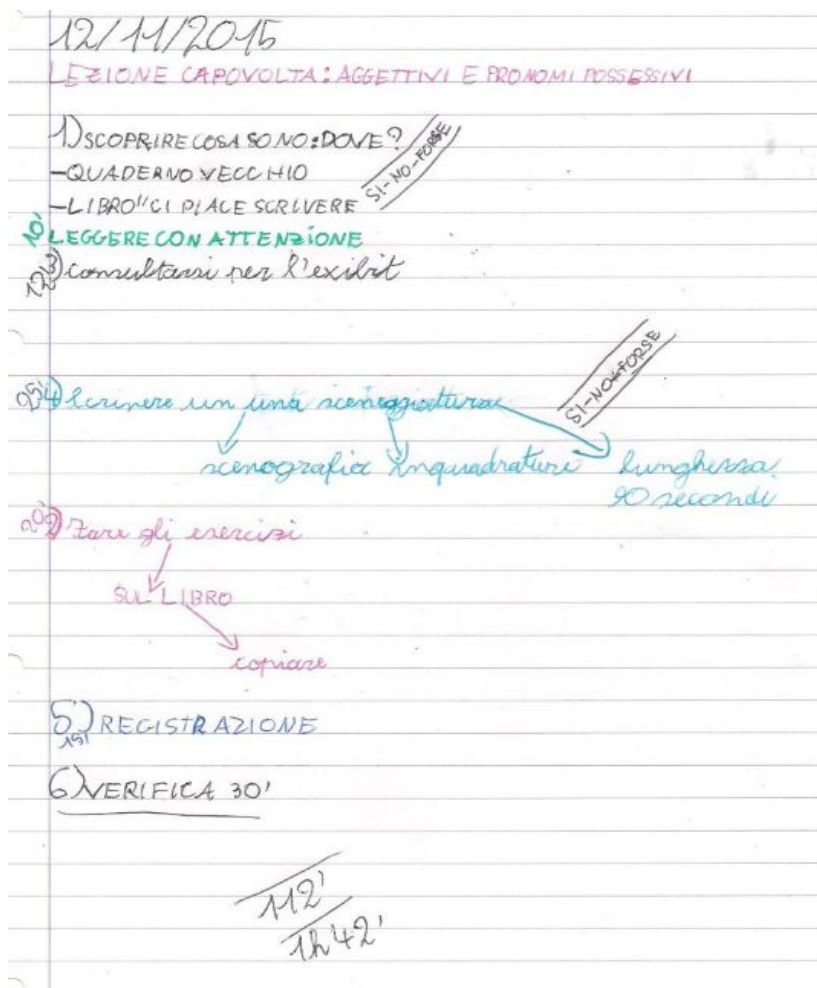 12/11/2015
LEZIONE CAPOVOLTA: AGGETTIVI E PRONOMI POSSESSIVI
1) SCOPRIRE COSA SONO: DOVE?
SI-NO-FORSE
-QUADERNO VECCHIO
-LIBRO "CI PIACE SCRIVERE
10' LEGGERE CON ATTENZIONE
12' 3) consultarsi per l'exibit
SI-NO-FORSE
25' 4) Scrivere un una sceneggiatura
scenografia inquadrature lunghezza
90 secondi
20' 2) Fare gli esercizi
SUL LIBRO
copiare
5) REGISTRAZIONE
15'
6) VERIFICA 30'
112'
1h 42'